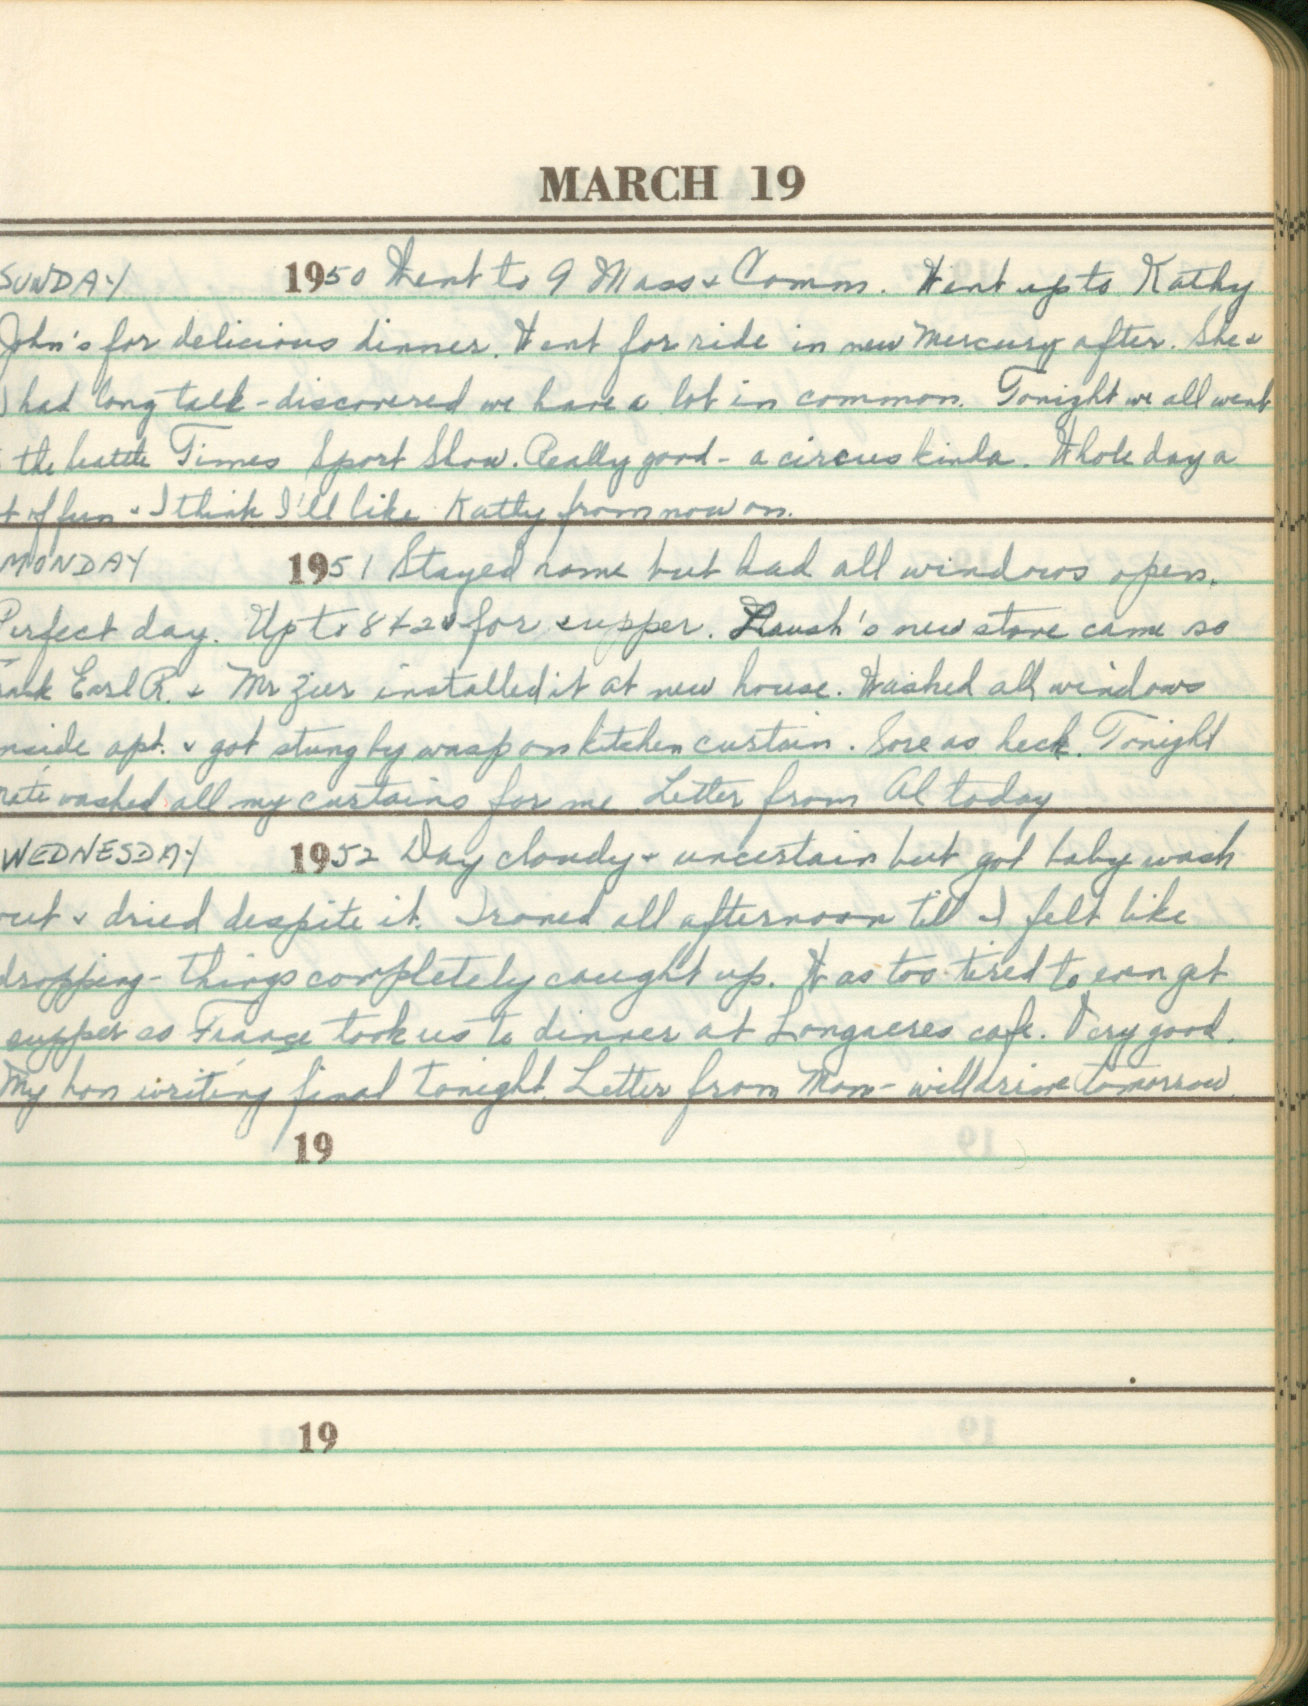 MARCH 19
SUNDAY 1950 Went to 9 Mass & Comm. Went up to Kathy
John's for delicious dinner. Went for ride in new Mercury after. She &
I had long talk - discovered we have a lot in common. Tonight we all went
the Seattle Times Sport Show. Really good - a circus kinda. Whole day a
of fun & I think I'll like Kathy from now on.
MONDAY 1951 Stayed home but had all windows open.
Perfect day. Up to for supper. new stove came so
Earl R. & Mr installed it at new house. Washed all windows
inside apt. & got stung by wasp on kitchen curtain. Sore as heck. Tonight
washed all my curtains for me Letter from Al today
WEDNESDAY 1952 Day cloudy & uncertain but got baby wash
out & dried despite it. Ironed all afternoon til I felt like
dropping - things completely caught up. Was too tired to even get
supper so France took us to dinner at Longacres cafe. Very good.
My hon writing final tonight. Letter from Mom - will drive tomorrow
19
19